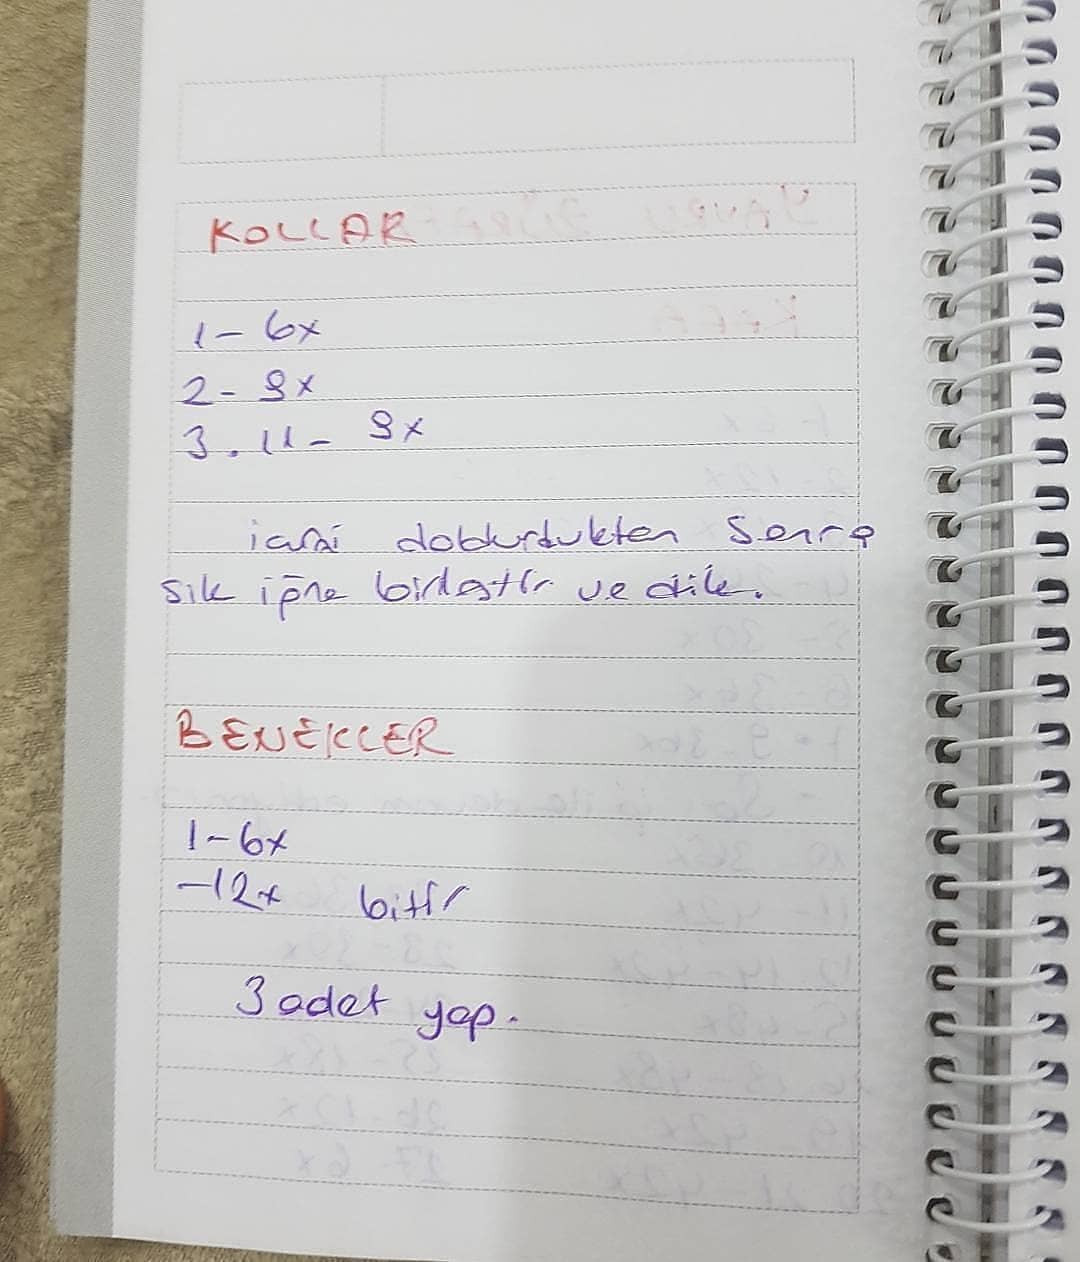 KOLLAR
1- 6x
2- 9x
3. 11- 9x
içini doldurduktan sonra
sık iğne birleştir ve dik.
BENEKLER
1-6x
-12x bitir
3 adet yap.